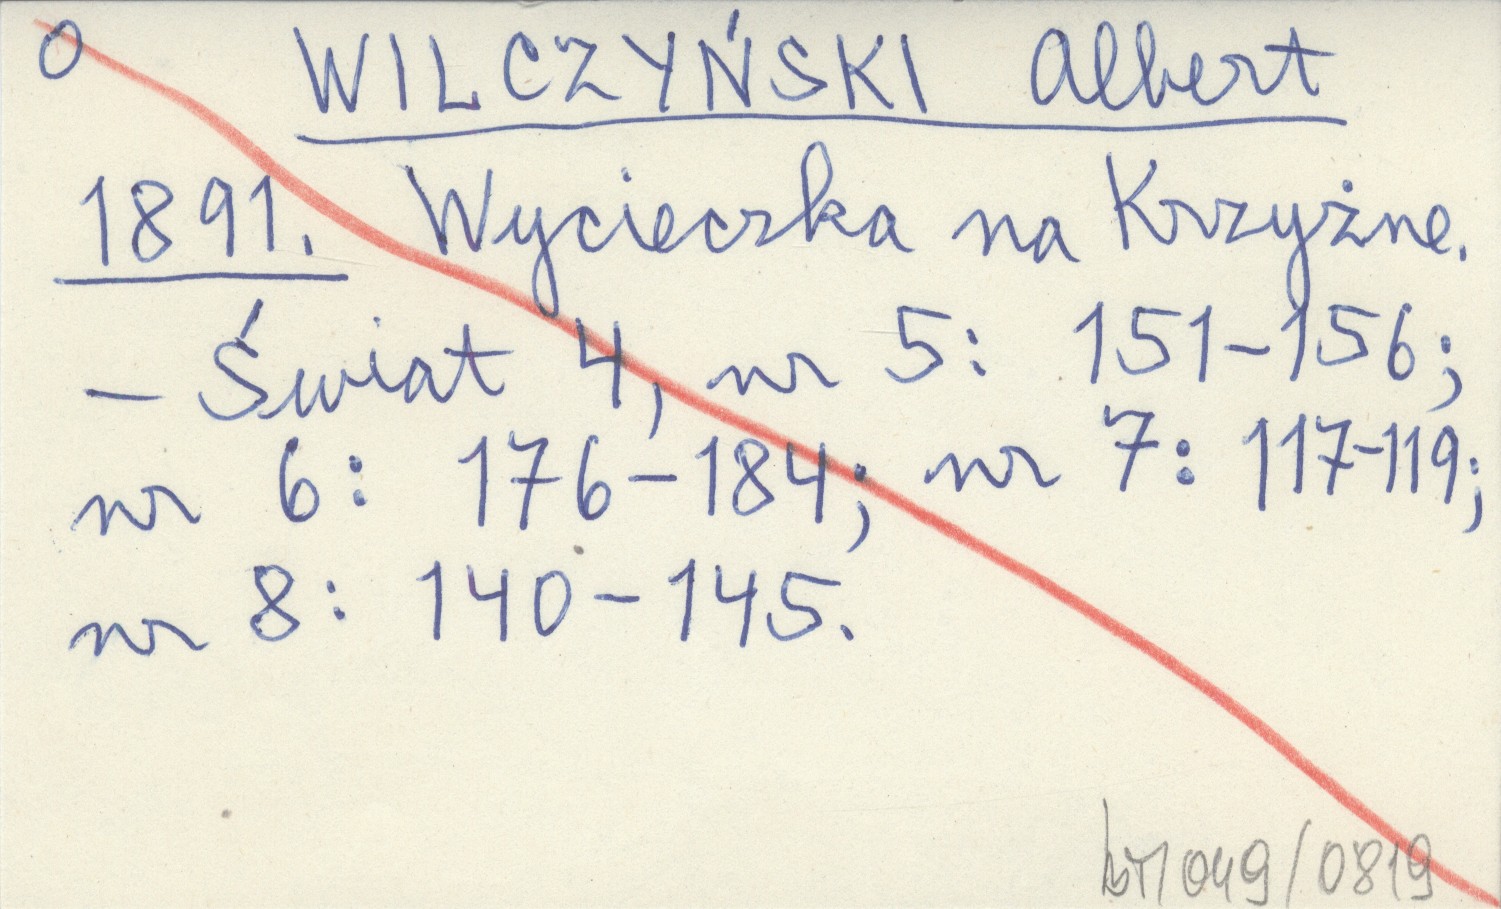 0 WILCZYŃSKI Albert
1891. Wycieczka na Krzyżne.
- Świat 4, nr 5: 151-156;
nr 6: 176-184; nr 7: 117-119;
nr 8: 140-145.
049/0819